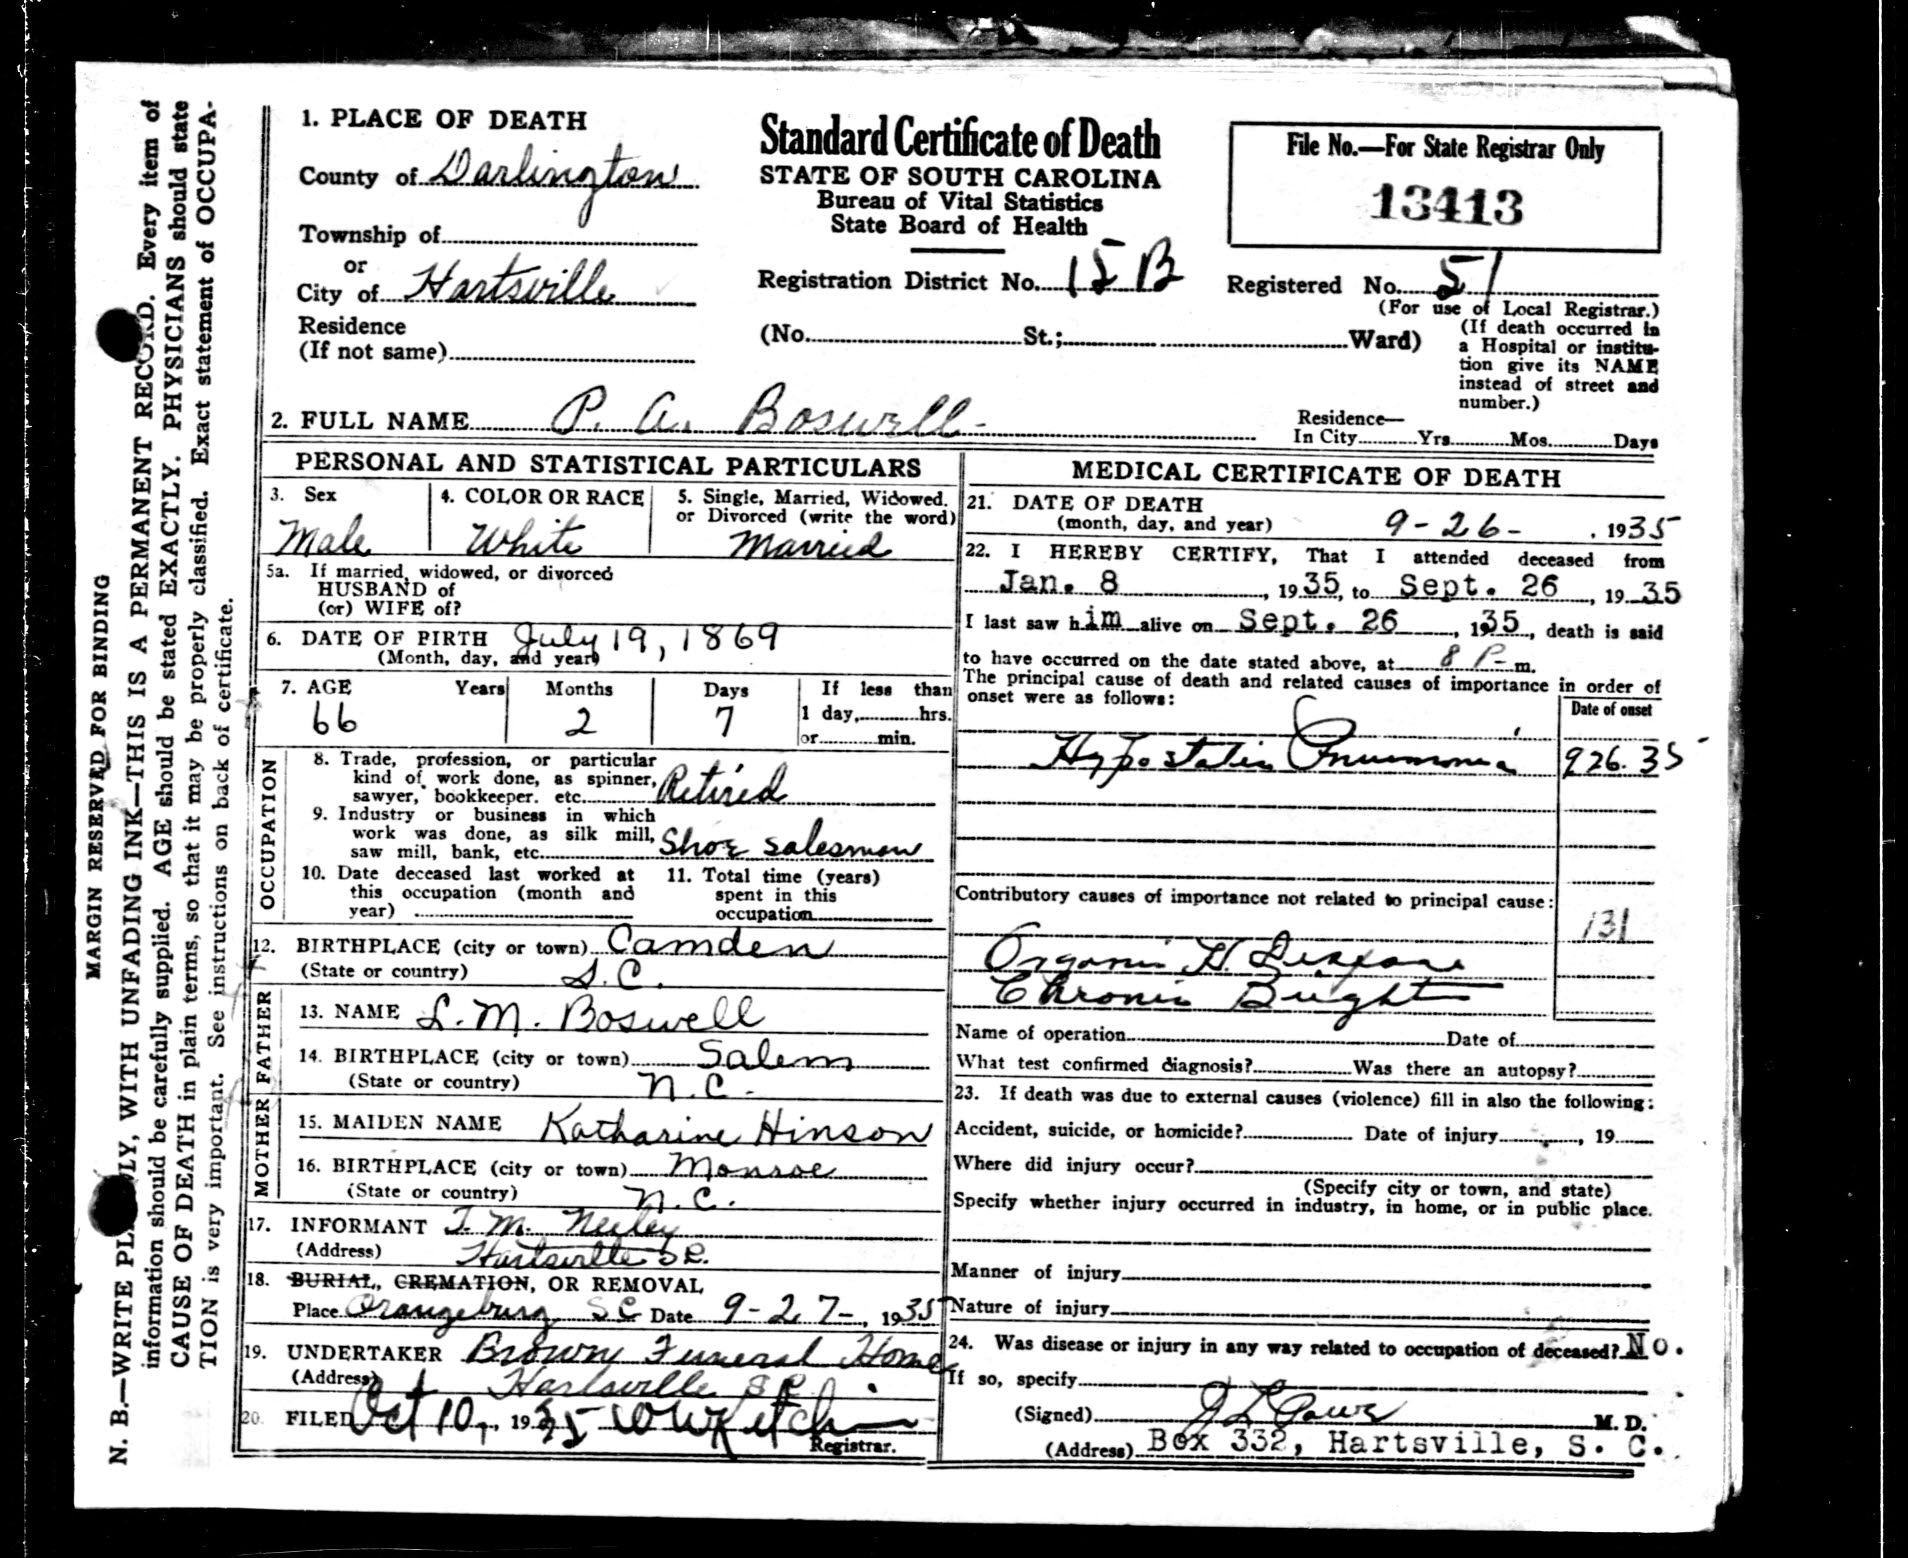 1. PLACE OF DEATH
County of Darlington
Township of
or
City of Hartsville
Residence
(If not same)
Standard Certificate of Death
STATE OF SOUTH CAROLINA
Bureau of Vital Statistics
State Board of Health
Registration District No. 15 B
(No. St.; Ward)
File No.—For State Registrar Only
13413
Registered No. 51
(For use of Local Registrar.)
(If death occurred in
a Hospital or institu-
tion give its NAME
instead of street and
number.)
2. FULL NAME P. A. Boswell
Residence—
In City Yrs Mos. Days
PERSONAL AND STATISTICAL PARTICULARS
3. Sex
Male
4. COLOR OR RACE
White
5. Single, Married, Widowed.
or Divorced (write the word)
Married
5a. If married, widowed, or divorced
HUSBAND of
(or) WIFE of?
6. DATE OF BIRTH July 19, 1869
(Month, day, and year)
7. AGE Years Months Days If less than
66 2 7 1 day, hrs.
or min.
OCCUPATION
8. Trade, profession, or particular
kind of work done, as spinner,
sawyer, bookkeeper. etc. Retired
9. Industry or business in which
work was done, as silk mill,
saw mill, bank, etc. Shoe Salesman
10. Date deceased last worked at
this occupation (month and
year)
11. Total time (years)
spent in this
occupation
12. BIRTHPLACE (city or town) Camden
(State or country) S.C.
FATHER
13. NAME L. M. Boswell
14. BIRTHPLACE (city or town) Salem
(State or country) N.C.
MOTHER
15. MAIDEN NAME Katharine Hinson
16. BIRTHPLACE (city or town) Monroe
(State or country) N.C.
17. INFORMANT T. M. Neeley
(Address) Hartsville S.C.
18. BURIAL, CREMATION, OR REMOVAL
Place Orangeburg S C Date 9-27-, 1935
19. UNDERTAKER Brown Funeral Home
(Address) Hartsville S C
20. FILED Oct 10, 1935
Registrar.
MEDICAL CERTIFICATE OF DEATH
21. DATE OF DEATH
(month, day, and year) 9-26-, 1935
22. I HEREBY CERTIFY, That I attended deceased from
Jan. 8, 1935, to Sept. 26, 1935
I last saw him alive on Sept. 26, 1935, death is said
to have occurred on the date stated above, at 8 P-m.
The principal cause of death and related causes of importance in order of
onset were as follows:
Date of onset
Hypostatic Pneumonia 926.35
Contributory causes of importance not related to principal cause:
131
Organic H. Disease
Chronic Bright
Name of operation Date of
What test confirmed diagnosis? Was there an autopsy?
23. If death was due to external causes (violence) fill in also the following:
Accident, suicide, or homicide? Date of injury, 19
Where did injury occur?
(Specify city or town, and state)
Specify whether injury occurred in industry, in home, or in public place.
Manner of injury
Nature of injury
24. Was disease or injury in any way related to occupation of deceased? No.
If so, specify
(Signed) M. D.
(Address) Box 332, Hartsville, S. C.
MARGIN RESERVED FOR BINDING
N. B.—WRITE PLAINLY, WITH UNFADING INK—THIS IS A PERMANENT RECORD. Every item of
information should be carefully supplied. AGE should be stated EXACTLY. PHYSICIANS should state
CAUSE OF DEATH in plain terms, so that it may be properly classified. Exact statement of OCCUPA-
TION is very important. See instructions on back of certificate.